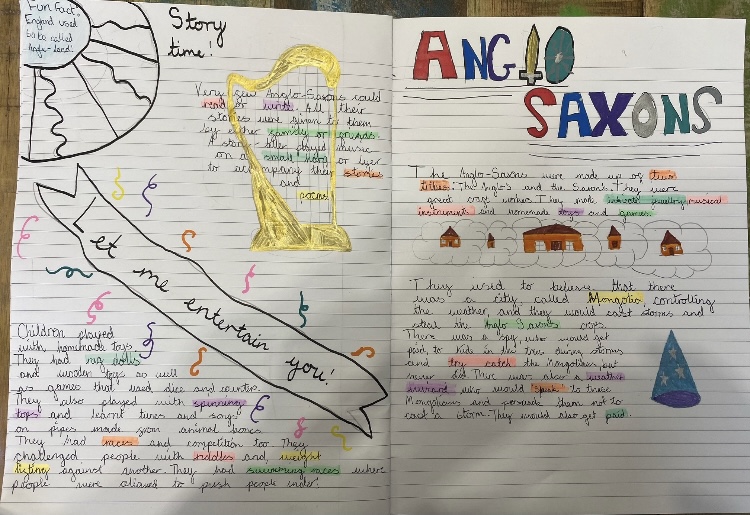 Fun Fact!
England used
to be called
Angle-land!
Story
time!
Very few Anglo-Saxons could
read or write. All their
stories were given to them
by either family or friends.
A story-teller played music
on a small harp or lyer
to accompany their stories
and
poems.
Let me entertain you!
Children played
with homemade toys.
They had rag dolls
and wooden toys as well
as games that used dice and counters.
They also played with spinning
tops and learnt tunes and songs
on pipes made from animal bones.
They had races and competition too. They
challenged people with riddles and weight
lifting against another. They had swimming races where
people were allowed to push people under!
ANGLO
SAXONS
The Anglo-Saxons were made up of two
tribes: The Anglo's and the Saxons. They were
great craft workers. They made intricate jewellery, musical
instruments and homemade toys and games.
They used to believe that there
was a city, called Mongolia, controlling
the weather, and they would cast storms and
steal the Anglo Saxons crops.
There was a spy, who would get
paid, to hide in the trees during storms
and try catch the Mongolians, but
never did. There was also a weather
wizard who would speak to these
Mongolians and persuade them not to
cast a storm. They would also get paid.